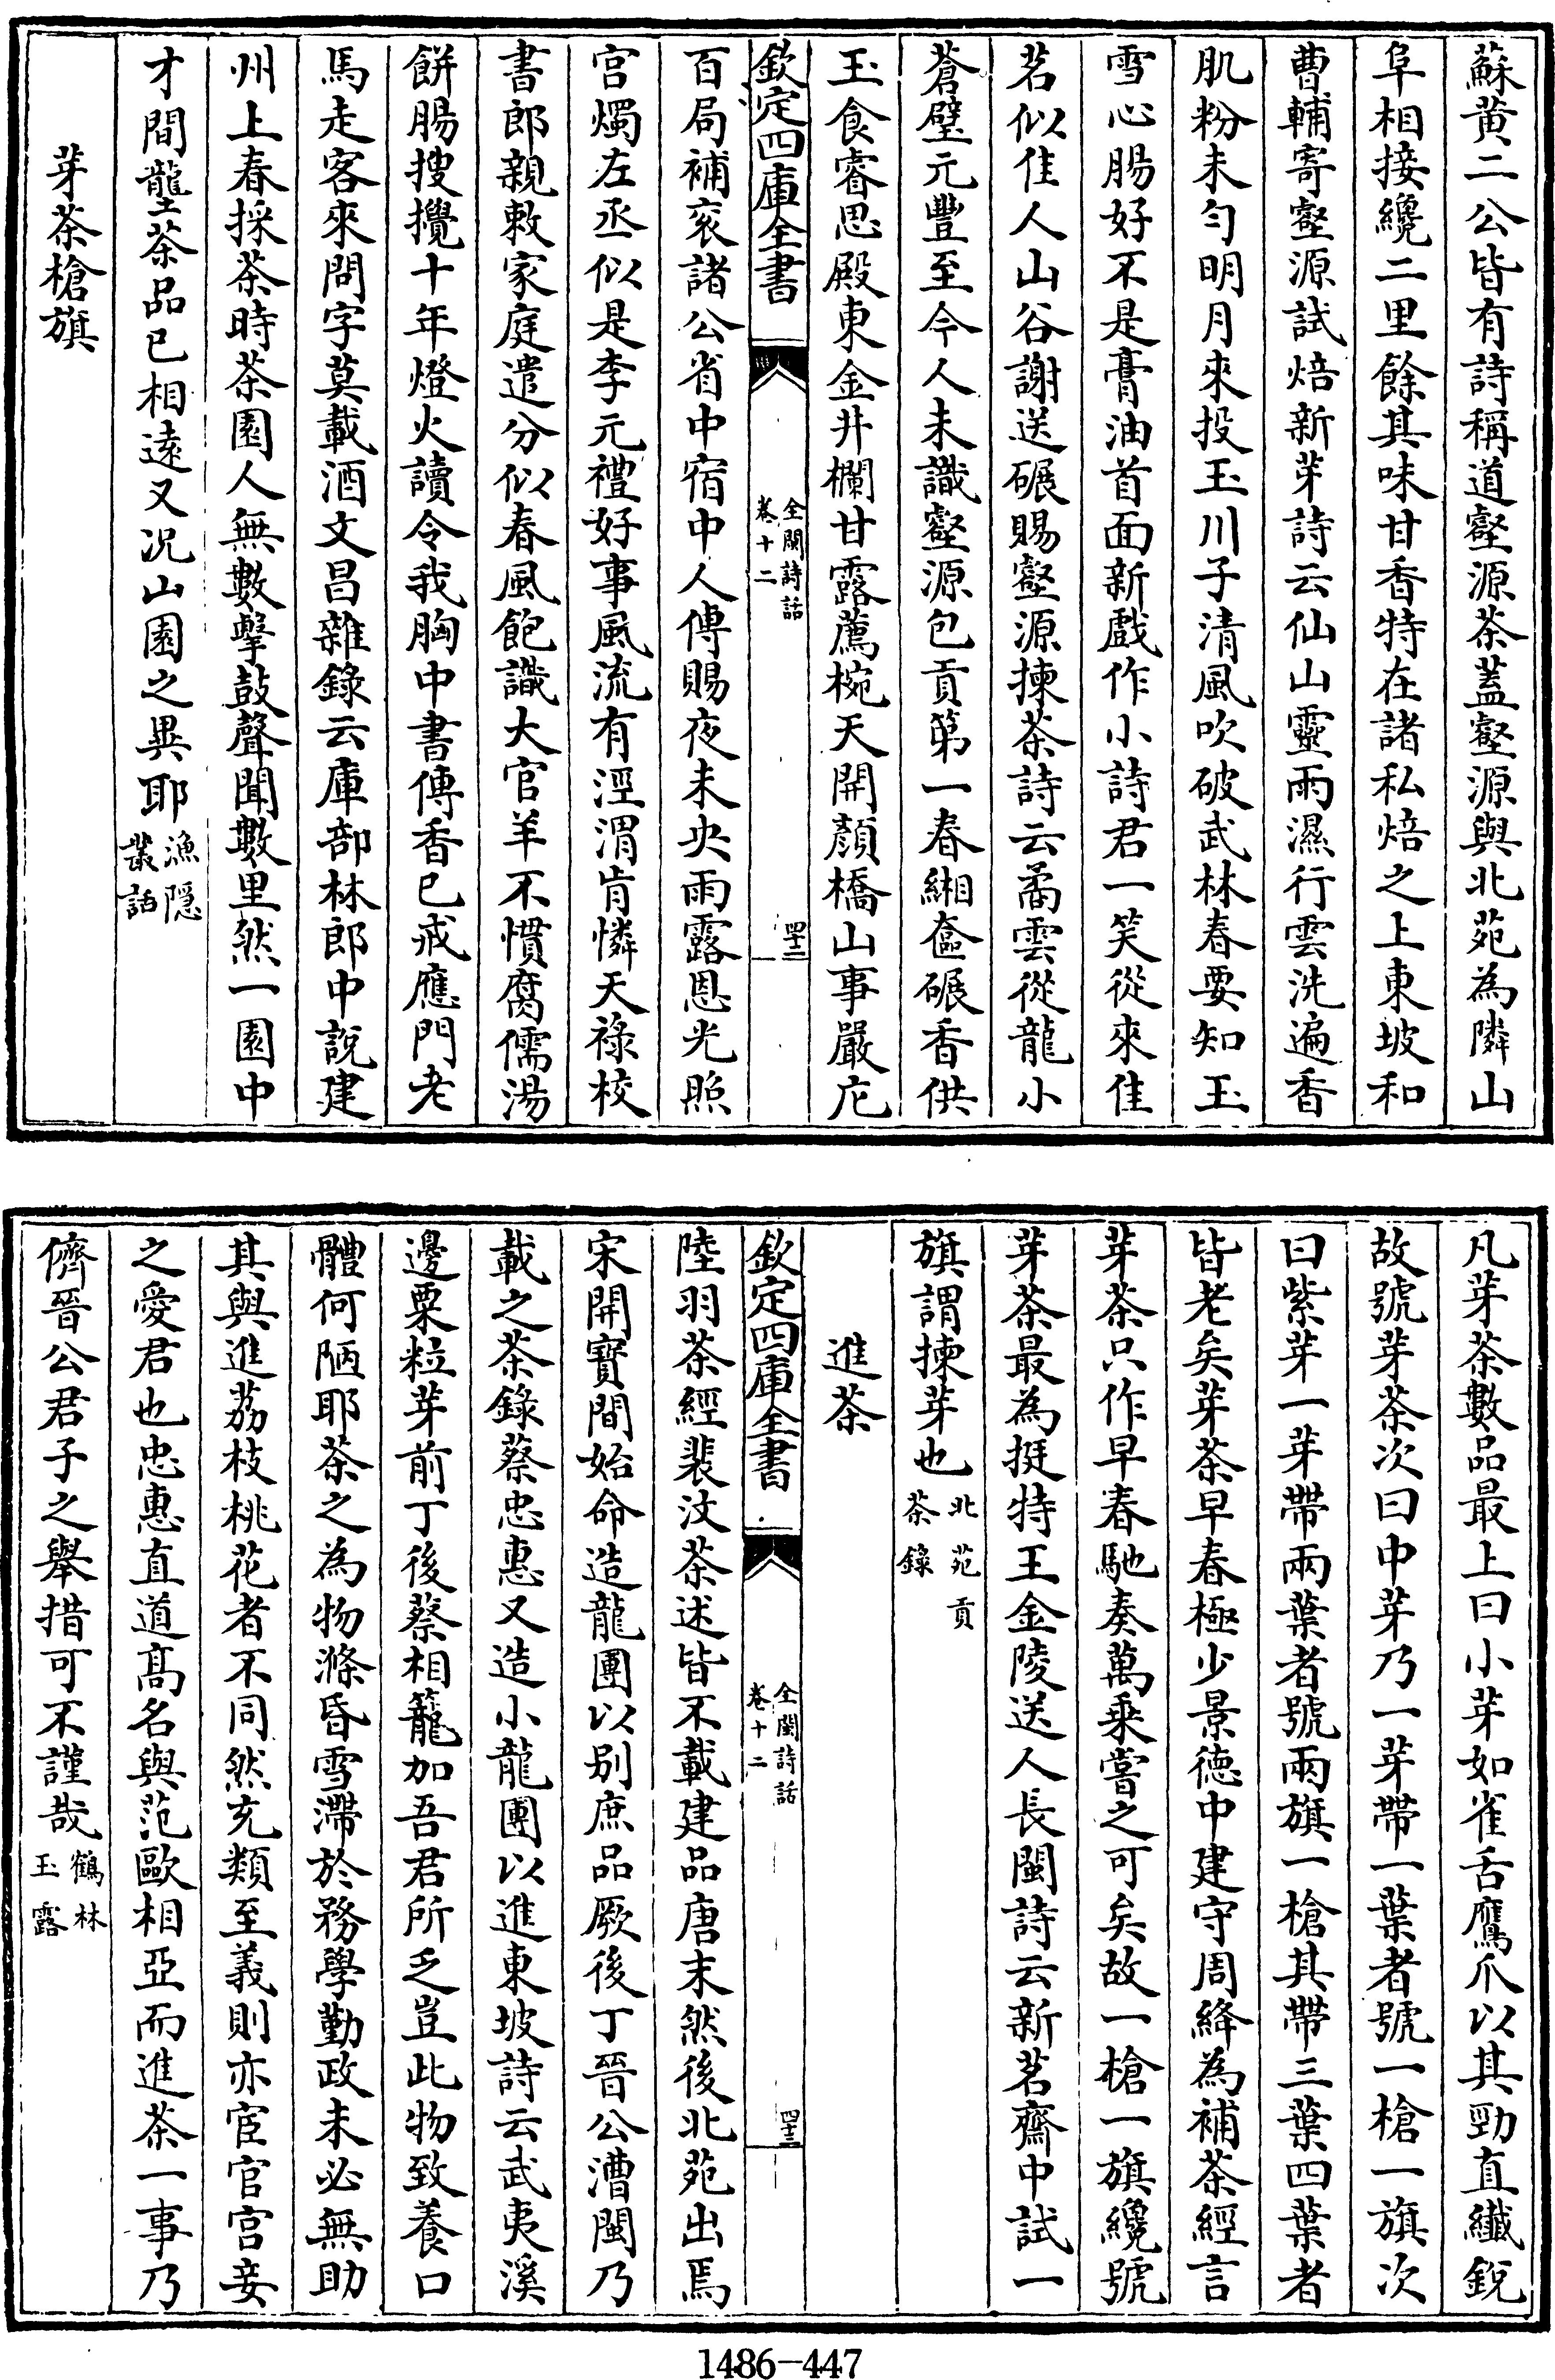 蘇黄二公皆有詩稱道壑源茶蓋壑源與北苑為隣山
阜相接纔二里餘其味甘香特在諸私焙之上東坡和
曹輔寄壑源試焙新芽詩云仙山靈雨濕行雲洗遍香
肌粉未勻明月來投玉川子清風吹破武林春要知玉
雪心腸好不是膏油首面新戲作小詩君一笑從來佳
茗似佳人山谷謝送碾賜壑源揀茶詩云矞雲從龍小
蒼璧元豐至今人未識壑源包貢第一春緗奩碾香供
玉食睿思殿東金井欄甘露薦椀天開顏橋山事嚴庀
欽定四庫全書
全閩詩話
卷十二
四十二
百局補衮諸公省中宿中人傳賜夜未央雨露恩光照
宫燭左丞似是李元禮好事風流有涇渭肯憐天祿校
書郎親敕家庭遣分似春風飽識大官羊不慣腐儒湯
餅腸搜攪十年燈火讀令我胸中書傳香已戒應門老
馬走客來問字莫載酒文昌雜錄云庫部林郎中說建
州上春採茶時茶園人無數擊鼓聲聞數里然一園中
才間壟茶品已相遠又况山園之異耶漁隱
叢話
芽茶槍旗
凡芽茶數品最上曰小芽如雀舌鷹爪以其勁直纎銳
故號芽茶次曰中芽乃一芽帶一葉者號一槍一旗次
曰紫芽一芽帶兩葉者號兩旗一槍其帶三葉四葉者
皆老矣芽茶早春極少景德中建守周絳為補茶經言
芽茶只作早春馳奏萬乘嘗之可矣故一槍一旗纔號
芽茶最為挺特王金陵送人長閩詩云新茗齋中試一
旗謂揀芽也北苑貢
茶錄
進茶
欽定四庫全書
全閩詩話
卷十二
四十三
陸羽茶經裴汶茶述皆不載建品唐末然後北苑出焉
宋開寶間始命造龍團以别庶品厥後丁晉公漕閩乃
載之茶錄蔡忠惠又造小龍團以進東坡詩云武夷溪
邊粟粒芽前丁後蔡相籠加吾君所乏豈此物致養口
體何陋耶茶之為物滌昏雪滯於務學勤政未必無助
其與進荔枝桃花者不同然充類至義則亦宦官宫妾
之愛君也忠惠直道髙名與范歐相亞而進茶一事乃
儕晉公君子之舉措可不謹哉鶴林
玉露
1486-447